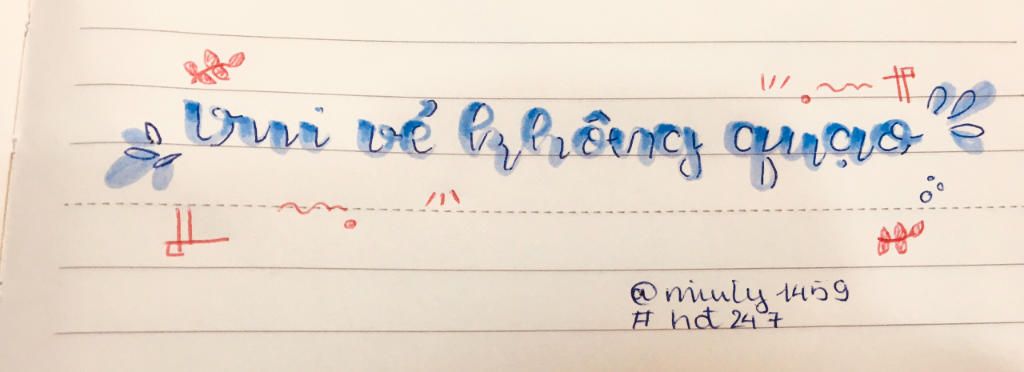 vui vẻ không quạo
@miuly1459
# hđ 247